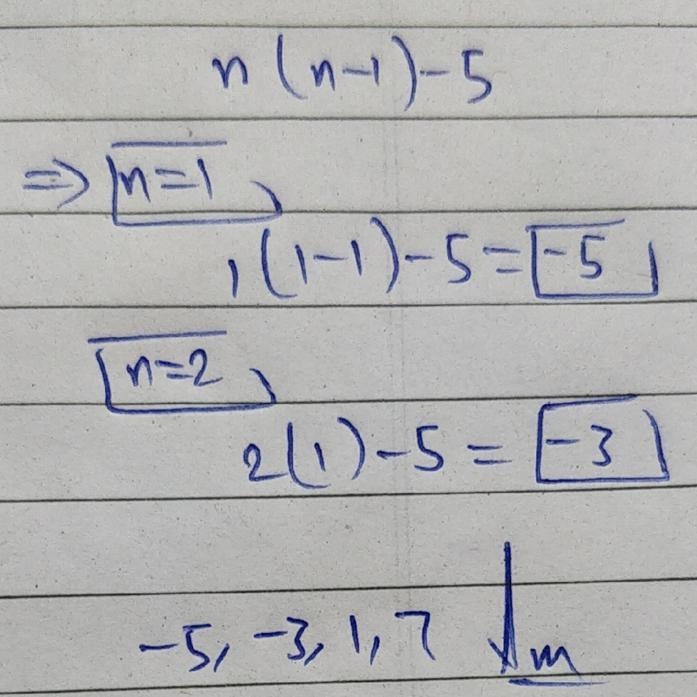 n(n-1)-5
⇒ n=1,
1(1-1)-5=-5
n=2,
2(1)-5=-3
-5, -3, 1, 7